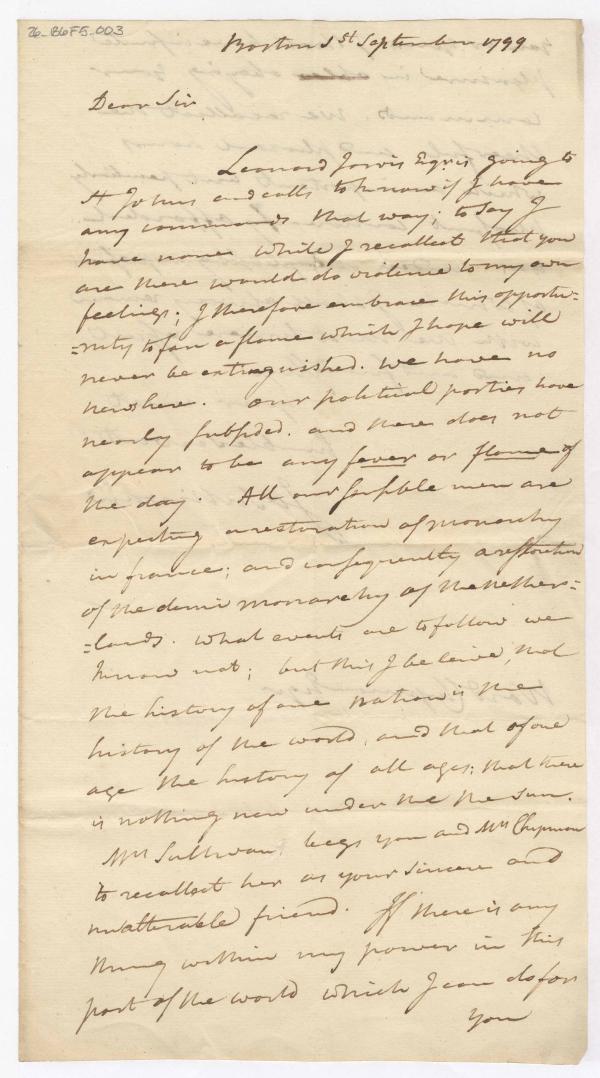 76-B6F5-003
Boston 1st September 1799
Dear Sir
Leonard Jarvis Esqr is going to
St Johns and calls to know if I have
any commands that way; to say I
have none while I recollect that you
are there would do violence to my own
feelings; I therefore embrace this opportu=
=nity to fan a flame which I hope will
never be extinguished. we have no
news here. Our political parties have
nearly subsided. and there does not
appear to be any fever or flame of
the day. All our sensible men are
expecting a restoration of monarchy
in france; and consequently a restoration
of the demi monarchy of the Nether=
=lands. what events are to follow we
know not; but this I beleive, that
the history of one nation is the
history of the world, and that of one
age the history of all ages; that there
is nothing new under the the sun.
Mrs Sullivan begs you and Mrs Chipman
to recollect her as your sincere and
unalterable friend. If there is any
thing within my power in this
part of the world which I can do for
you